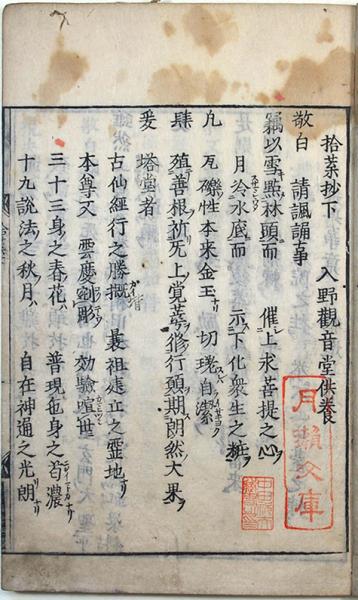 拾葉抄下 入野觀音堂供養
敬白 請諷誦事
竊以雪點林頭而 催上求菩提之心
月冷水底而 示下化衆生之粧
凡 瓦礫性本来金玉ナリ 切瑰自潔
肆 殖善根祈无上覚蕚修行頭期朗然大果
爰 塔堂者
古仙經行之勝概 最祖建立之霊地ナリ
本尊又 雲慶彫 也効驗喧世
三十三身之春花ハ 普現也身之匂濃
十九說法之秋月ハ 自在神通之光朗
月瀬文庫